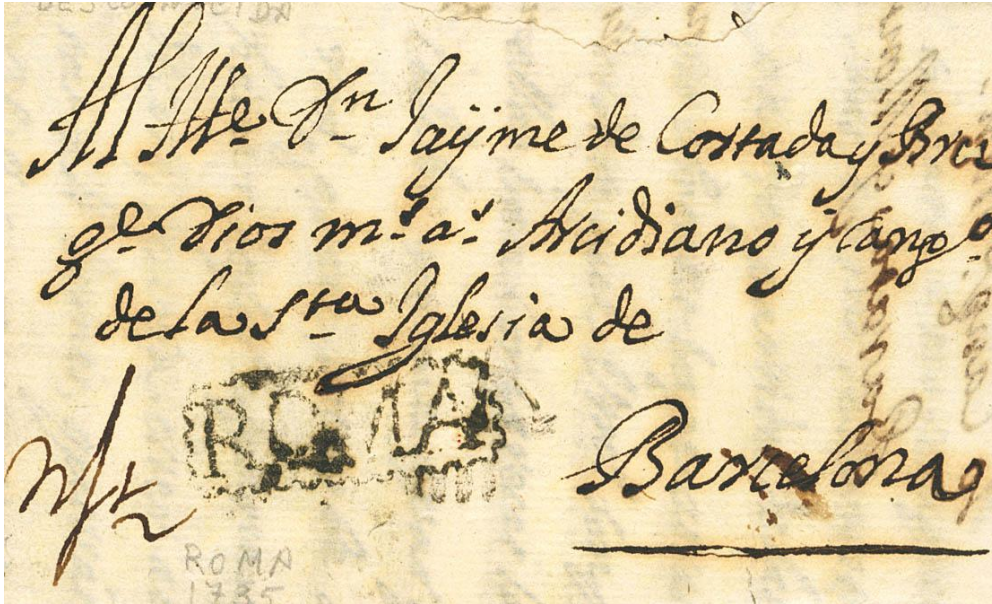 DESCONOCIDA
Al Ille. Dn Jayme de Cortada y
ge. Dios ms. as. Arcidiano y Cango.
de la Sta Iglesia de
ROMA
Barcelona
ROMA
1735